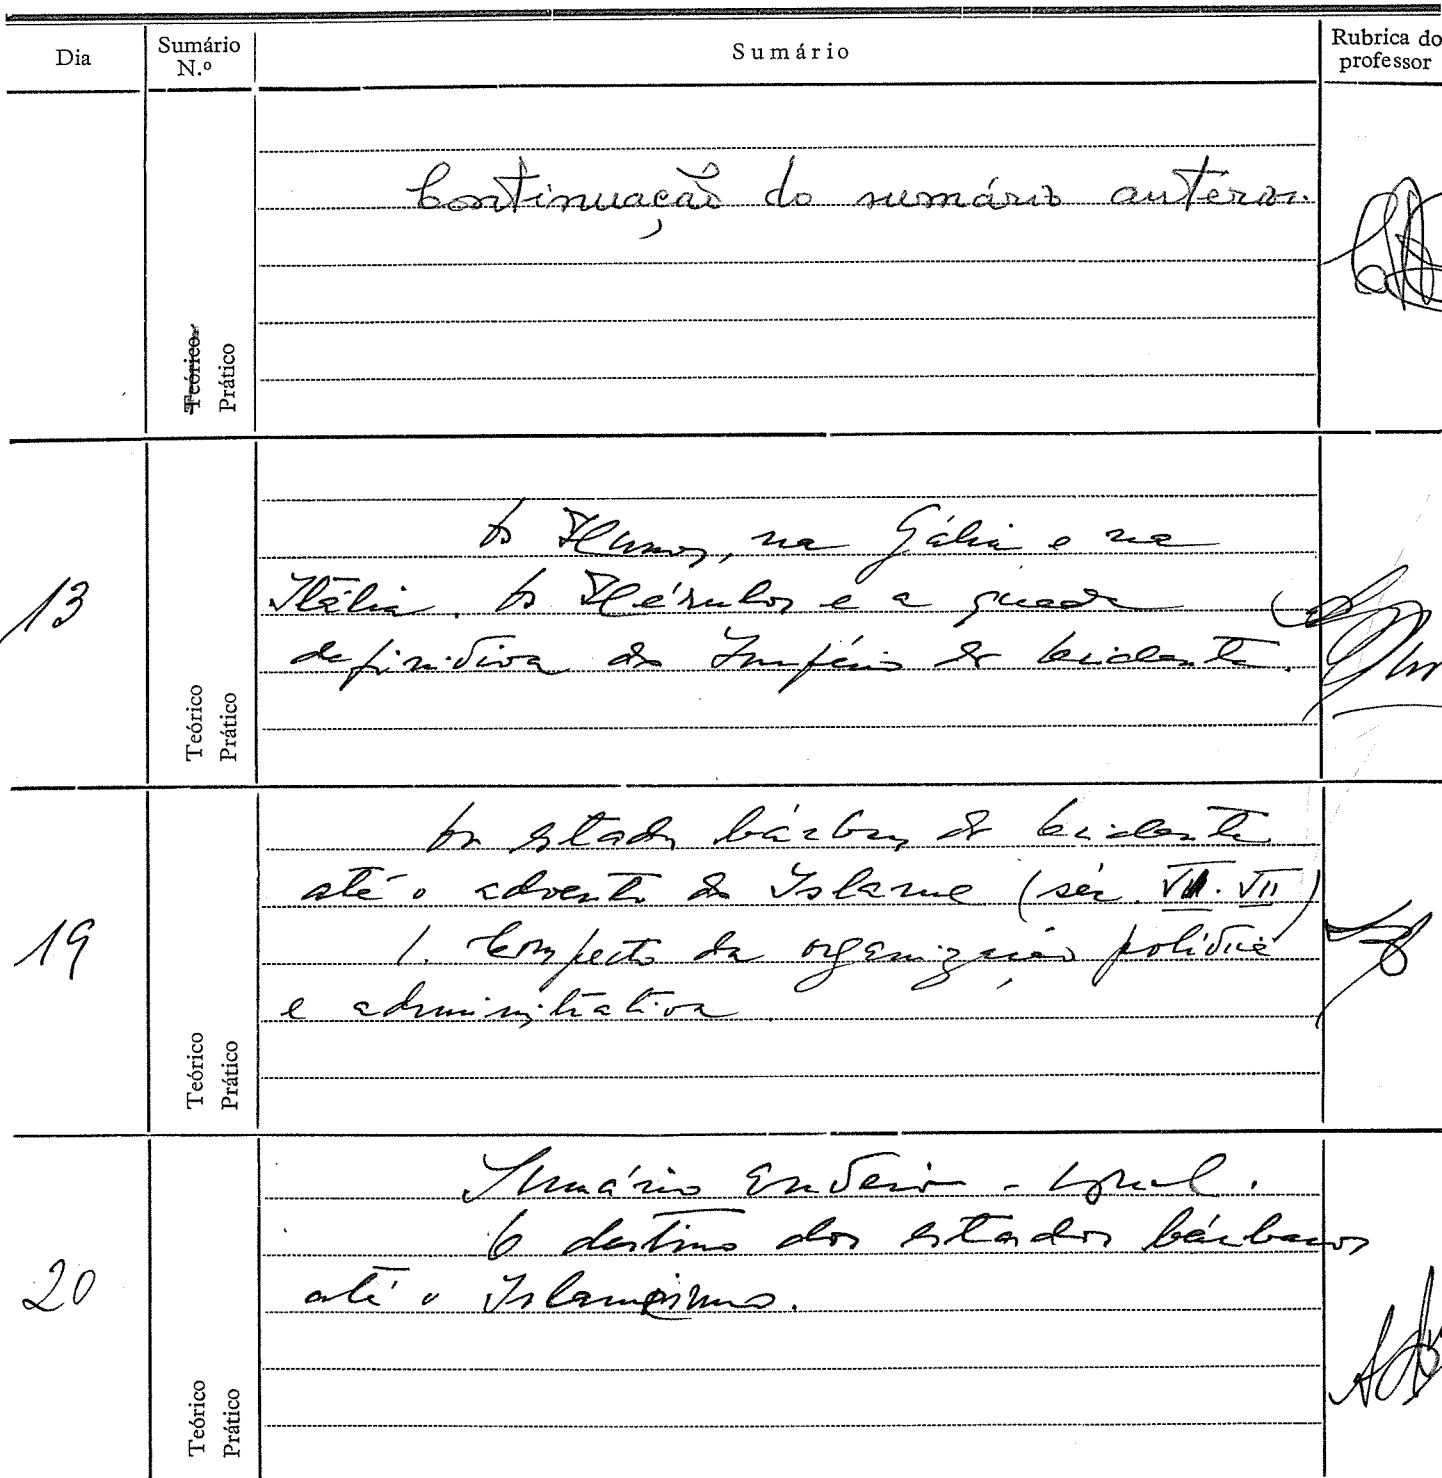 Dia
Sumário N.º
Sumário
Rubrica do professor
Continuação do sumário anterior.
Teórico
Prático
13
Os Hunos, na Gália e na
Itália. Os Hérulos e a queda
definitiva do Império do Ocidente.
Teórico
Prático
19
Os estados bárbaros do Ocidente
até o advento do Islame (séc. VII)
1. da organização política
e administrativa.
Teórico
Prático
20
Sumário
O destino dos estados bárbaros
até o Islamismo.
Teórico
Prático